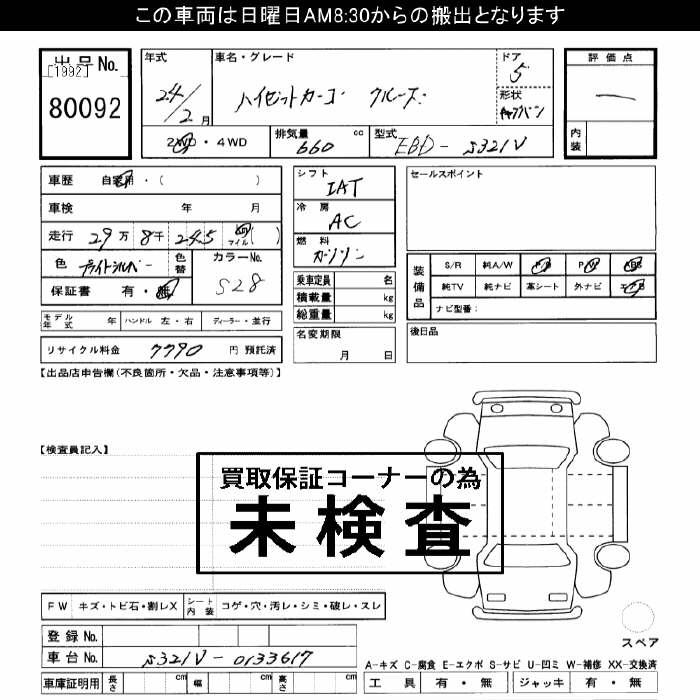 この車両は日曜日AM8:30からの搬出となります
出品No.
[1992]
80092
年式
24/2月
車名・グレード
ハイゼットカーゴ クルーズ
ドア
5
形状
評価点
内装
2WD・4WD
排気量 660 cc
型式 EBD-S321V
車歴 自家用・( )
車検 年 月
走行 29万8千245 km マイル ( )
色 ブライトシルバー
色替
カラーNo.
S28
保証書 有・無
モデル年式 年 ハンドル 左・右 ディーラー・並行
リサイクル料金 7790 円 預託済
シフト
IAT
冷房
AC
燃料
ガソリン
乗車定員 名
積載量 kg
総重量 kg
名変期限
月 日
セールスポイント
装備品
S/R 純A/W P/S P/W ABS
純TV 純ナビ 革シート 外ナビ エアB
ナビ型番:
後日品
【出品店申告欄(不良箇所・欠品・注意事項等)】
【検査員記入】
買取保証コーナーの為
未検査
FW キズ・トビ石・割レX シート内装 コゲ・穴・汚レ・シミ・破レ・スレ
登録No.
車台No. S321V-0133617
車庫証明用 長さ cm 幅 cm 高さ cm
スペア
A-キズ C-腐食 E-エクボ S-サビ U-凹ミ W-補修 XX-交換済
工具 有・無 ジャッキ 有・無